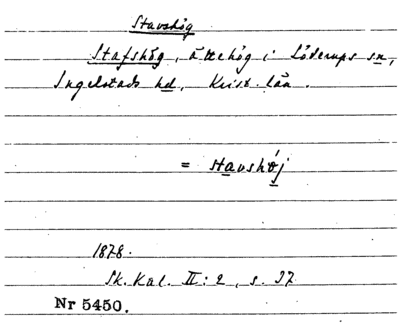 Stavshög
Stafshög, ättehög i Löderups sn,
Ingelstads hd, Krist. län.
= stavshøj
1878.
Sk. Kal. II: 2, s. 37
Nr 5450.